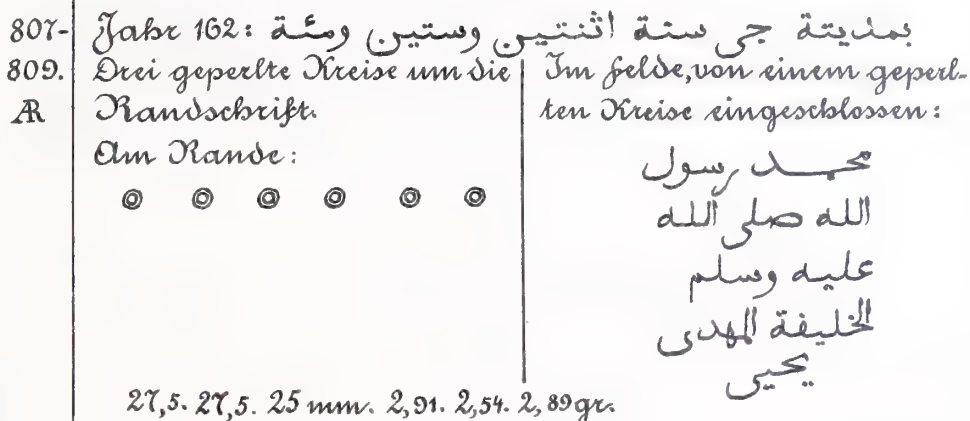 807- Jahr 162: بمدينة جى سنة اثنتين وستين ومئة
809. Drei geperlte Kreise um die
AR Randschrift.
Am Rande:
Im Felde, von einem geperl-
ten Kreise eingeschlossen:
محمد رسول
الله صلى الله
عليه وسلم
الخليفة المهدى
يحيى
27,5. 27,5. 25 mm. 2,91. 2,54. 2,89 gr.